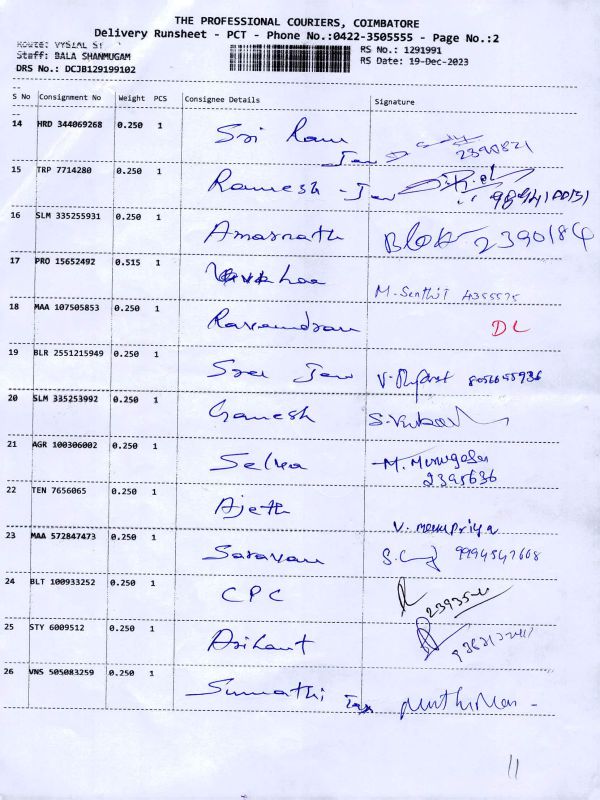 THE PROFESSIONAL COURIERS, COIMBATORE
Delivery Runsheet - PCT - Phone No.:0422-3505555 - Page No.:2
Route: VYSIAL ST
RS No.: 1291991
Staff: BALA SHANMUGAM
RS Date: 19-Dec-2023
DRS No.: DCJB129199102
S No Consignment No Weight PCS Consignee Details Signature
14 HRD 344069268 0.250 1 Sri Ram
2390821
15 TRP 7714280 0.250 1 Ramesh
16 SLM 335255931 0.250 1 Amarnath 2390184
17 PRO 15652492 0.515 1 M. Senthil
18 MAA 107505853 0.250 1 DL
19 BLR 2551215949 0.250 1 Sree 8056055936
20 SLM 335253992 0.250 1 Ganesh
21 AGR 100306002 0.250 1 Selva M. Murugesan
2395636
22 TEN 7656065 0.250 1 Ajeth
V. menupriya
23 MAA 572847473 0.250 1 Saravan 9994547608
24 BLT 100933252 0.250 1 CPC
25 STY 6009512 0.250 1 Arihant
26 VNS 505083259 0.250 1 Sumathi
11